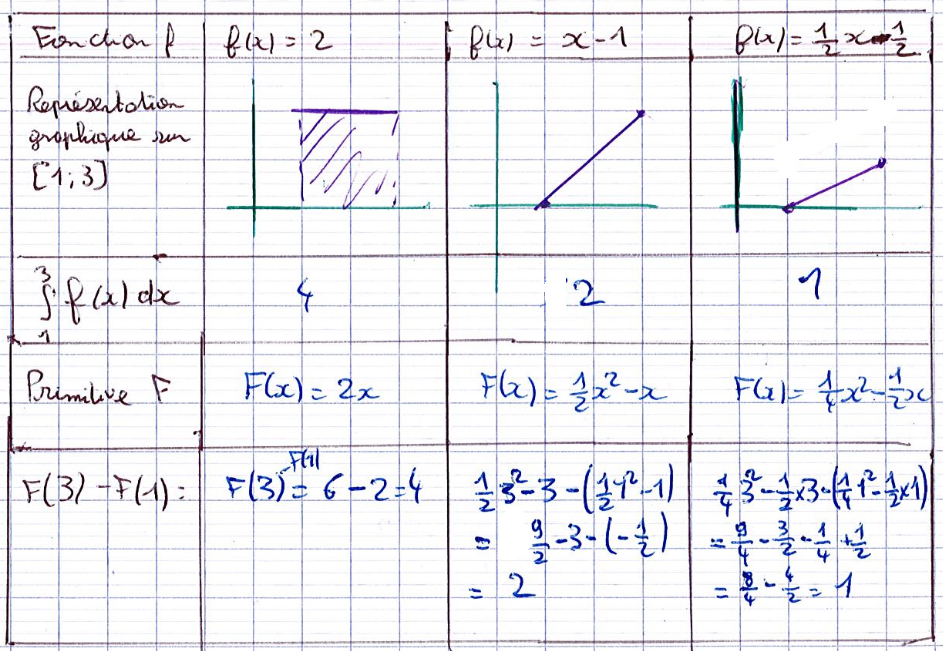 Fonction f
f(x) = 2
f(x) = x - 1
f(x) = 1/2 x - 1/2
Représentation
graphique sur
[1; 3]
∫₁³ f(x) dx
4
2
1
Primitive F
F(x) = 2x
F(x) = 1/2 x² - x
F(x) = 1/4 x² - 1/2 x
F(3) - F(1) =
F(3) - F(1) = 6 - 2 = 4
1/2 3² - 3 - (1/2 1² - 1)
= 9/2 - 3 - (-1/2)
= 2
1/4 3² - 1/2 × 3 - (1/4 1² - 1/2 × 1)
= 9/4 - 3/2 - 1/4 + 1/2
= 8/4 - 4/2 = 1